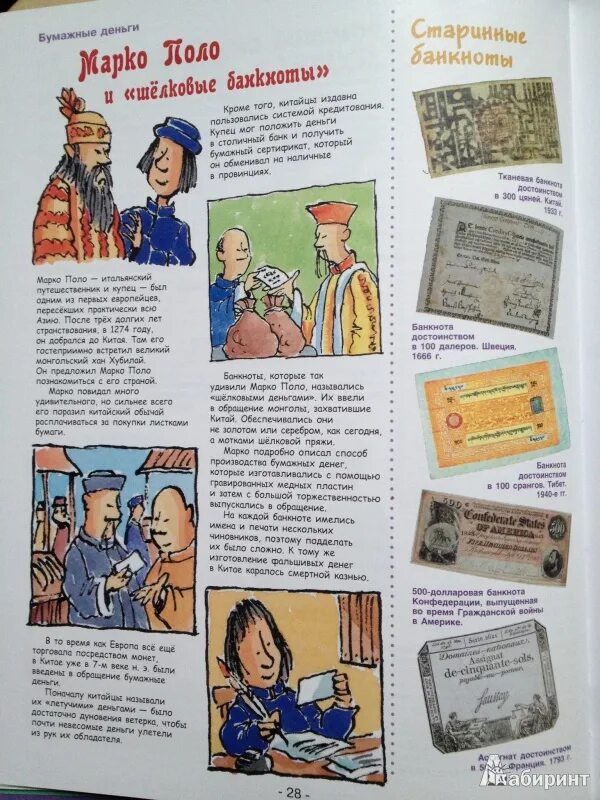 Бумажные деньги
Марко Поло
и «шёлковые банкноты»
Марко Поло — итальянский
путешественник и купец — был
одним из первых европейцев,
пересёкших практически всю
Азию. После трёх долгих лет
странствования, в 1274 году,
он добрался до Китая. Там его
гостеприимно встретил великий
монгольский хан Хубилай.
Он предложил Марко Поло
познакомиться с его страной.
Марко повидал много
удивительного, но сильнее всего
его поразил китайский обычай
расплачиваться за покупки листками
бумаги.
В то время как Европа всё ещё
торговала посредством монет,
в Китае уже в 7-м веке н. э. были
введены в обращение бумажные
деньги.
Поначалу китайцы называли
их «летучими» деньгами — было
достаточно дуновения ветерка, чтобы
почти невесомые деньги улетели
из рук их обладателя.
Кроме того, китайцы издавна
пользовались системой кредитования.
Купец мог положить деньги
в столичный банк и получить
бумажный сертификат, который
он обменивал на наличные
в провинциях.
Банкноты, которые так
удивили Марко Поло, назывались
«шёлковыми деньгами». Их ввели
в обращение монголы, захватившие
Китай. Обеспечивались они
не золотом или серебром, как сегодня,
а мотками шёлковой пряжи.
Марко подробно описал способ
производства бумажных денег,
которые изготавливались с помощью
гравированных медных пластин
и затем с большой торжественностью
выпускались в обращение.
На каждой банкноте имелись
имена и печати нескольких
чиновников, поэтому подделать
их было сложно. К тому же
изготовление фальшивых денег
в Китае каралось смертной казнью.
- 28 -
Старинные
банкноты
Тканевая банкнота
достоинством
в 300 цяней. Китай.
1933 г.
Банкнота
достоинством
в 100 далеров. Швеция.
1666 г.
Банкнота
достоинством
в 100 срангов. Тибет.
1940-е гг.
500
Confederate States
OF AMERICA
500
500-долларовая банкнота
Конфедерации, выпущенная
во время Гражданской войны
в Америке.
Domaines nationaux.
Assignat
de cinquante sols,
Ассигнат достоинством
Франция. 1793 г.
Лабиринт